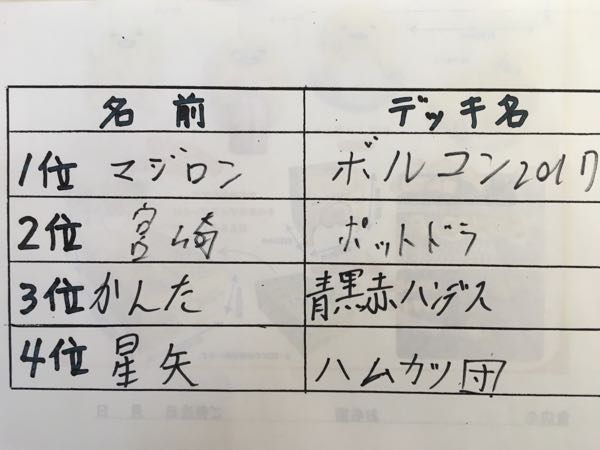 名前 デッキ名
1位 マジロン ボルコン2017
2位 宮崎 ポットドラ
3位 かんた 青黒赤ハンデス
4位 星矢 ハムカツ団